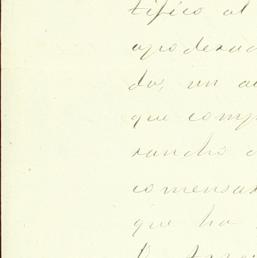 tifico al
apodera
do, un a
que comp
rancho
comenza
que ha